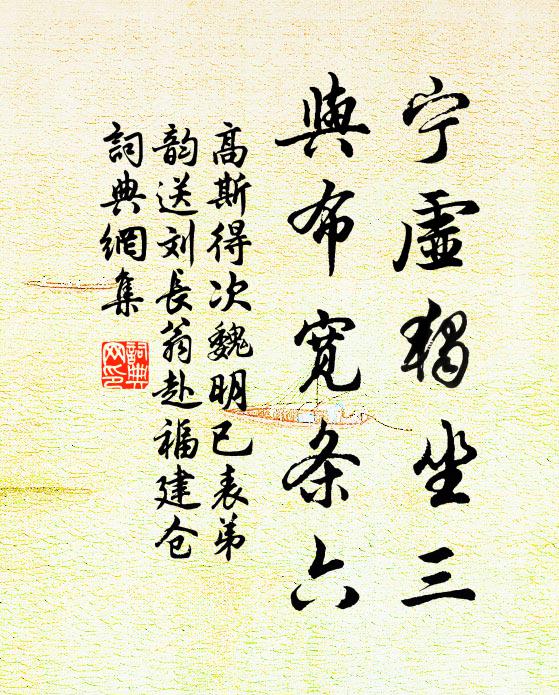 宁虛獨坐三
與布寬条六
高斯得次魏明已表弟
韵送刘長翁赴福建仓
詞典網集
詞典网印